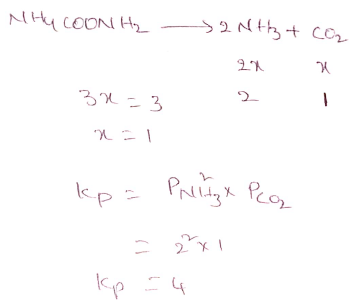 NH4COONH2 → 2NH3 + CO2
2x x
3x = 3 2 1
x = 1
Kp = P²NH3 x PCO2
= 2² x 1
Kp = 4